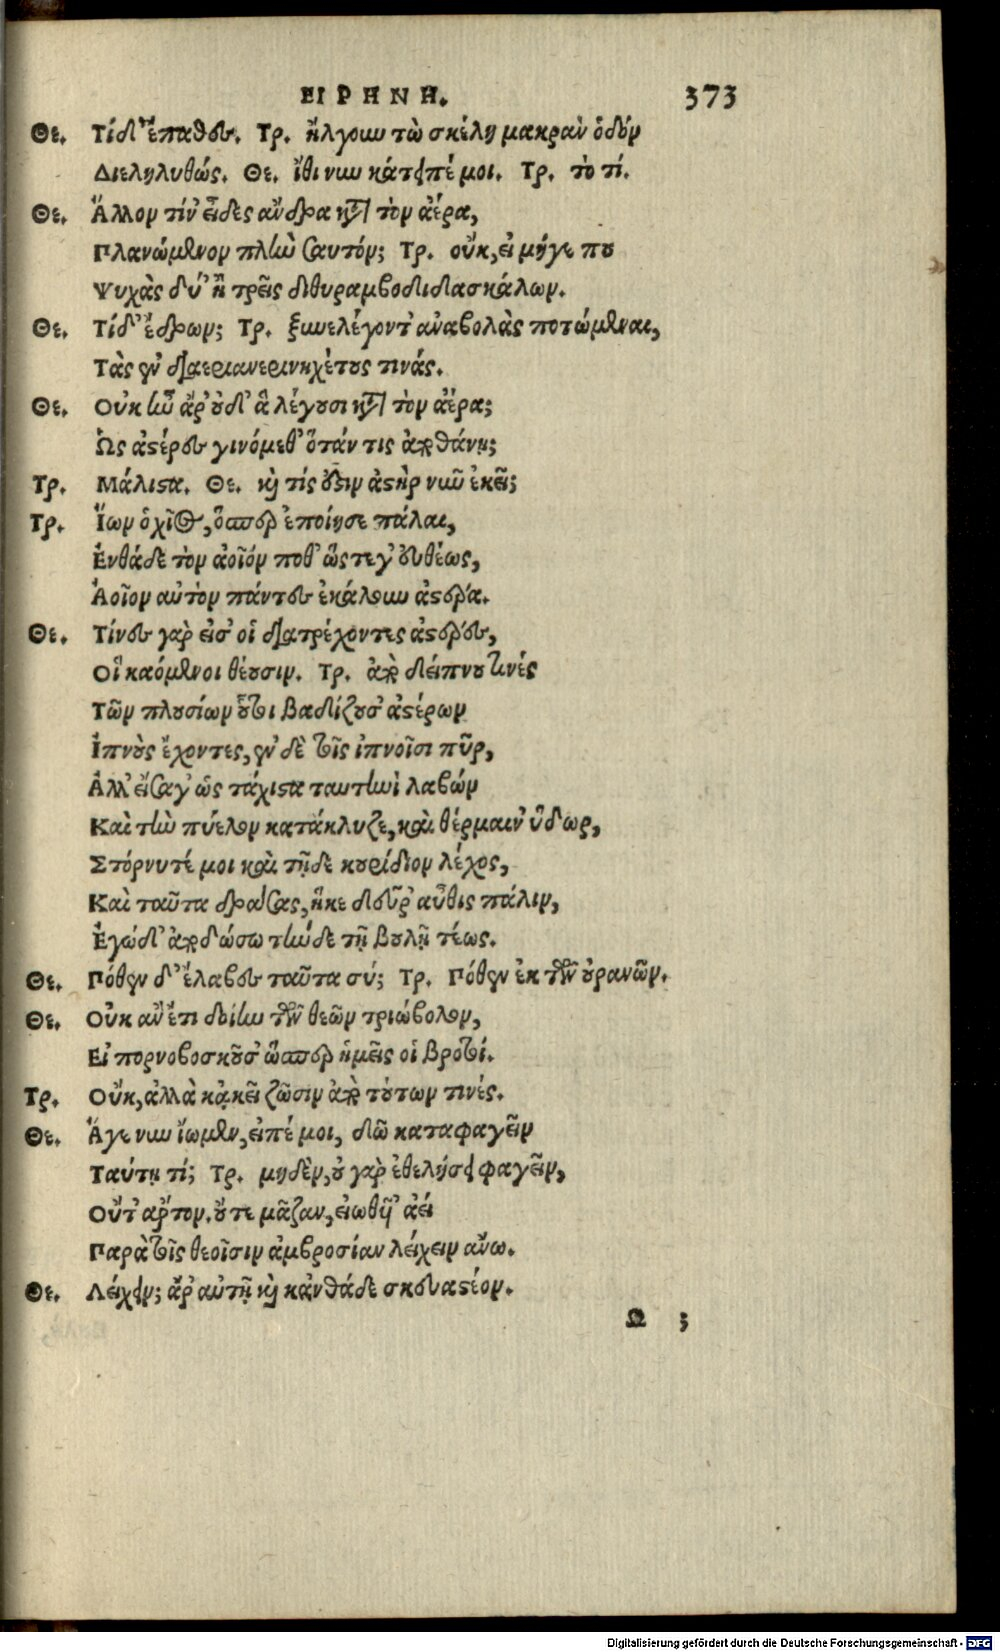 ΕΙΡΗΝΗ. 373
Θε. Τί δ' ἔπαθες. Τρ. ἤλγουν τὼ σκέλη μακρὰν ὁδόν
Διεληλυθώς. Θε. ἴθι νυν κάτειπέ μοι. Τρ. τὸ τί.
Θε. Ἄλλον τίν' εἶδες ἄνδρα κατὰ τὸν ἀέρα,
Πλανώμενον πλὴν σαυτόν; Τρ. οὔκ, εἰ μή γε που
Ψυχὰς δύ' ἢ τρεῖς διθυραμβοδιδασκάλων.
Θε. Τί δ' ἔδρων; Τρ. ξυνελέγοντ' ἀναβολὰς ποτώμεναι,
Τὰς ἐνδιαεριανερινηχέτους τινάς.
Θε. Οὐκ ἦν ἄρ' οὐδ' ἃ λέγουσι κατὰ τὸν ἀέρα;
Ὡς ἀστέρες γινόμεθ' ὅτάν τις ἀποθάνῃ;
Τρ. Μάλιστα. Θε. καὶ τίς ἐστιν ἀστὴρ νῦν ἐκεῖ;
Τρ. Ἴων ὁ χῖος, ὅσπερ ἐποίησε πάλαι,
Ἐνθάδε τὸν ἀοῖόν ποθ' ὥς τε γ' εὐθέως,
Ἀοῖον αὐτὸν πάντες ἐκάλουν ἀστέρα.
Θε. Τίνες γὰρ εἰσ' οἱ διατρέχοντες ἀστέρες,
Οἳ καόμενοι θέουσιν. Τρ. ἀπὸ δείπνου τινές
Τῶν πλουσίων οὗτοι βαδίζουσ' ἀστέρων
Ἰπνοὺς ἔχοντες, ἐν δὲ τοῖς ἰπνοῖσι πῦρ,
Ἀλλ' εἴσαγ' ὡς τάχιστα ταυτηνὶ λαβών
Καὶ τὴν πύελον κατάκλυζε, καὶ θέρμαιν' ὕδωρ,
Στόρνυτέ μοι καὶ τῇδε κουρίδιον λέχος,
Καὶ ταῦτα δράσας, ἧκε δεῦρ' αὖθις πάλιν,
Ἐγὼ δ' ἀποδώσω τήνδε τῇ βουλῇ τέως.
Θε. Πόθεν δ' ἔλαβες ταῦτα σύ; Τρ. Πόθεν ἐκ τῶν οὐρανῶν.
Θε. Οὐκ ἂν ἔτι δοίην τῶν θεῶν τριώβολον,
Εἰ πορνοβοσκοῦσ' ὥσπερ ἡμεῖς οἱ βροτοί.
Τρ. Οὔκ, ἀλλὰ κἀκεῖ ζῶσιν ἀπὸ τούτων τινές.
Θε. Ἄγε νυν ἴωμεν, εἰπέ μοι, δῶ καταφαγεῖν
Ταύτῃ τί; Τρ. μηδὲν, οὐ γὰρ ἐθελήσει φαγεῖν,
Οὔτ' ἄρτον. οὔτε μᾶζαν, εἰωθυῖ' ἀεί
Παρὰ τοῖς θεοῖσιν ἀμβροσίαν λείχειν ἄνω.
Θε. Λείχειν; ἄρ' αὐτῇ καὶ κἀνθάδε σκευαστέον.
Ω ;
Digitalisierung gefördert durch die Deutsche Forschungsgemeinschaft - DFG